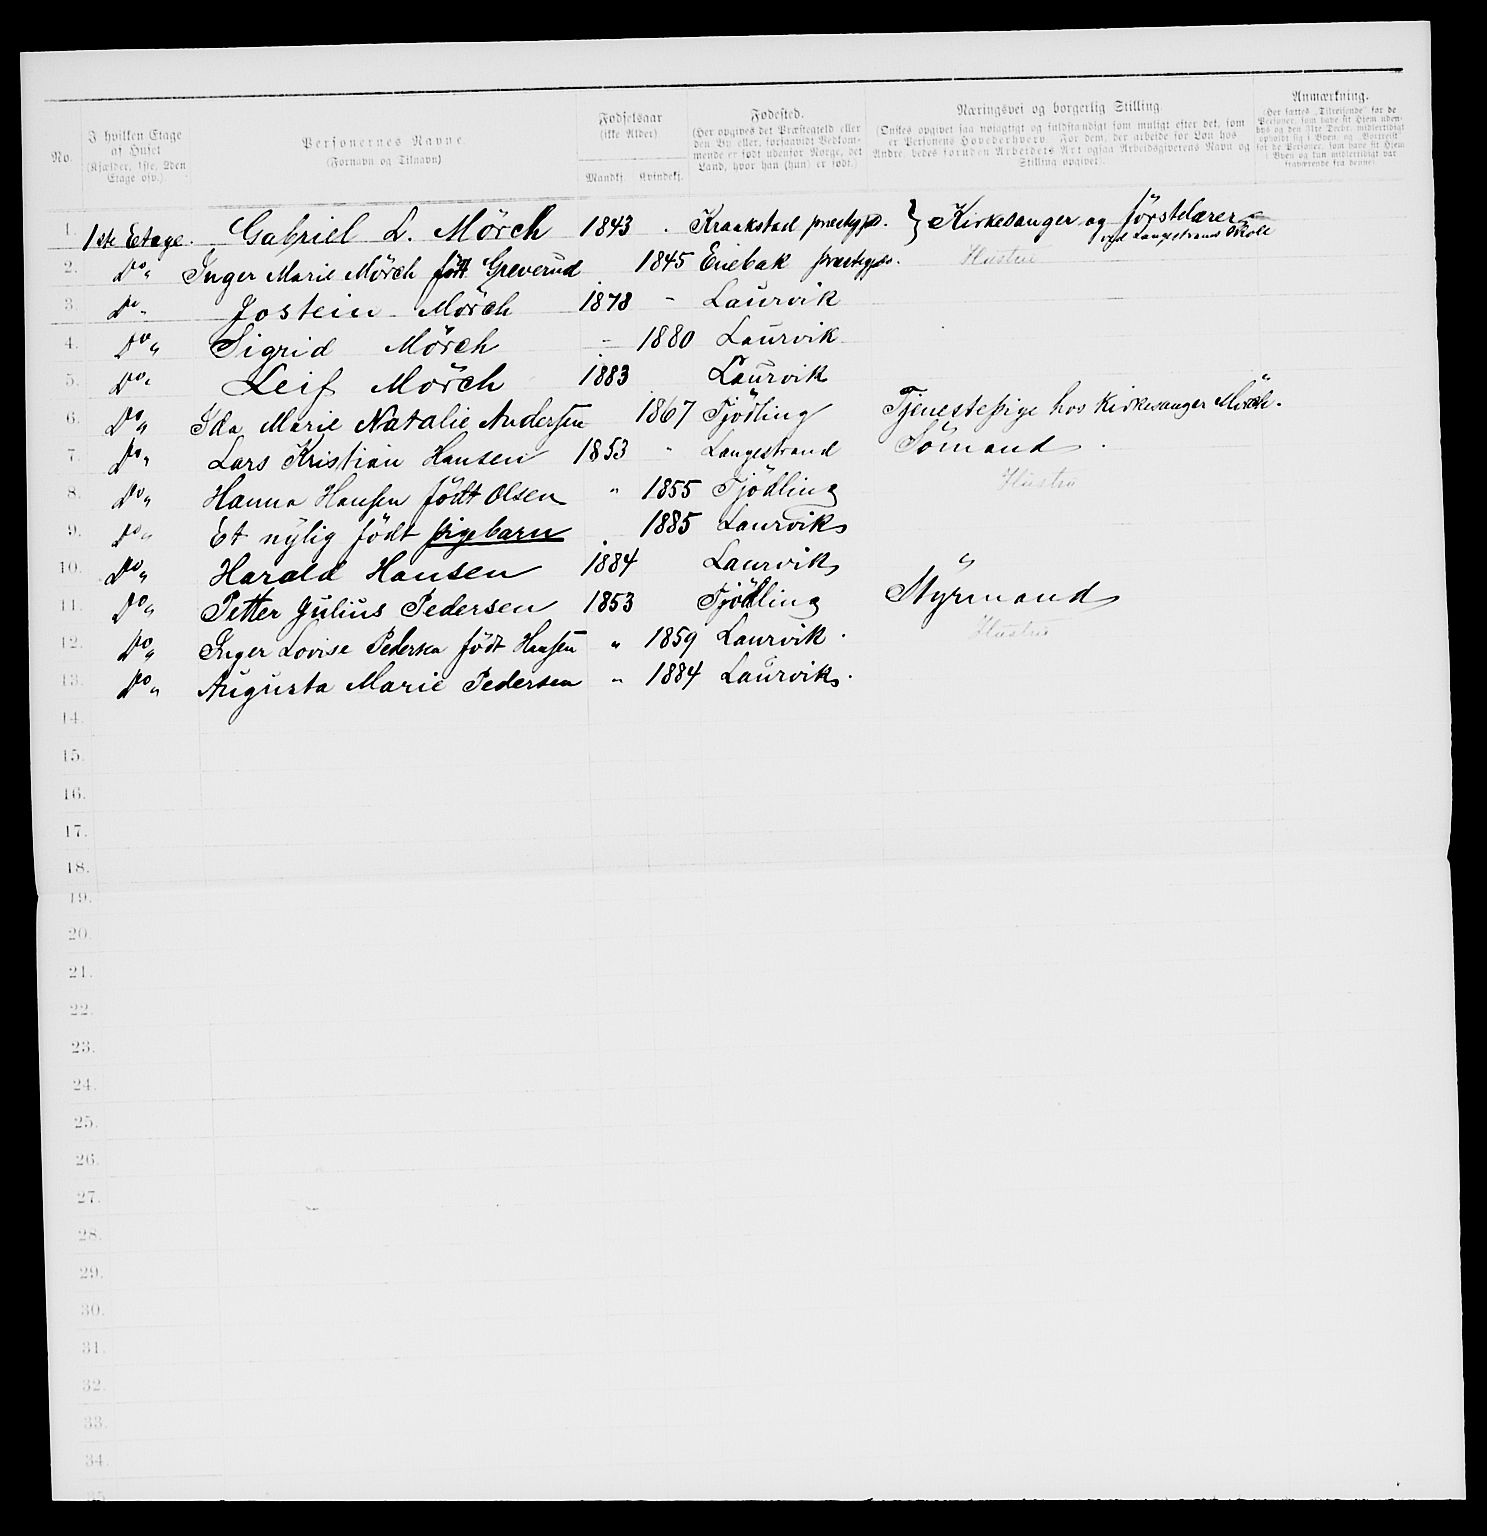 No.
I hvilken Etage af Huset (Kjælder, 1ste, 2den Etage osv.).
Personernes Navne. (Fornavn og Tilnavn)
Fødselsaar (ikke Alder)
Mandkj. Kvindekj.
Fødested. (Her opgives det Præstegjeld eller den By eller, forsaavidt Vedkommende er født udenfor Norge, det Land, hvor han (hun) er født.)
Næringsvei og borgerlig Stilling. (Ønskes opgivet saa nøiagtigt og fuldstændigt som muligt efter det, som er Personens Hovederhverv. For dem, der arbeide for Løn hos Andre, bedes foruden Arbeidets Art ogsaa Arbeidsgiverens Navn og Stilling opgivet).
Anmærkning. (Her sættes „Tilreisende" for de Personer, som have sit Hjem udenbys og den 31te Decbr. midlertidigt opholdt sig i Byen, og „Bortreist" for de Personer, som have sit Hjem i Byen og kun midlertidigt var fraværende fra denne)
1. 1ste Etage. Gabriel L. Mörch 1843 . Kraakstad præstgjd. } Kirkesanger og förstelærer ved Langestrands Skole
2. Do„ Inger Marie Mörch født Greverud 1845 Enebak præstegjd. Hustru
3. Do„ Jostein Mörch 1878 - Laurvik
4. Do„ Sigrid Mörch - 1880 Laurvik
5. Do„ Leif Mörch 1883 Laurvik
6. Do„ Ida Marie Natalie Andersen 1867 Tjödling Tjenestepige hos Kirkesanger Mörch.
7. Do„ Lars Kristian Hansen 1853 „ Langestrand Sömand.
8. Do„ Hanna Hansen födt Olsen „ 1855 Tjödling Hustru
9. Do„ Et nylig födt pigebarn 1885 Laurvik
10. Do„ Harald Hansen 1884 Laurvik „
11. Do„ Petter Julius Pedersen 1853 Tjödling Styrmand
12. Do„ Inger Lovise Pedersen födt Hansen „ 1859 Laurvik. Hustru
13. Do„ Augusta Marie Pedersen „ 1884 Laurvik.
14.
15.
16.
17.
18.
19.
20.
21.
22.
23.
24.
25.
26.
27.
28.
29.
30.
31.
32.
33.
34.
35